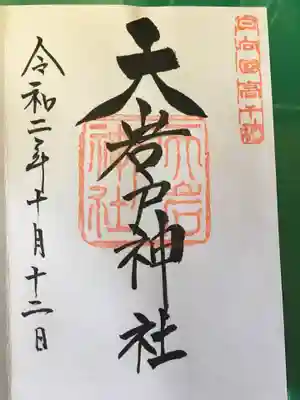 日向国高千穂
天岩戸神社
天岩戸神社
令和二年十月十二日